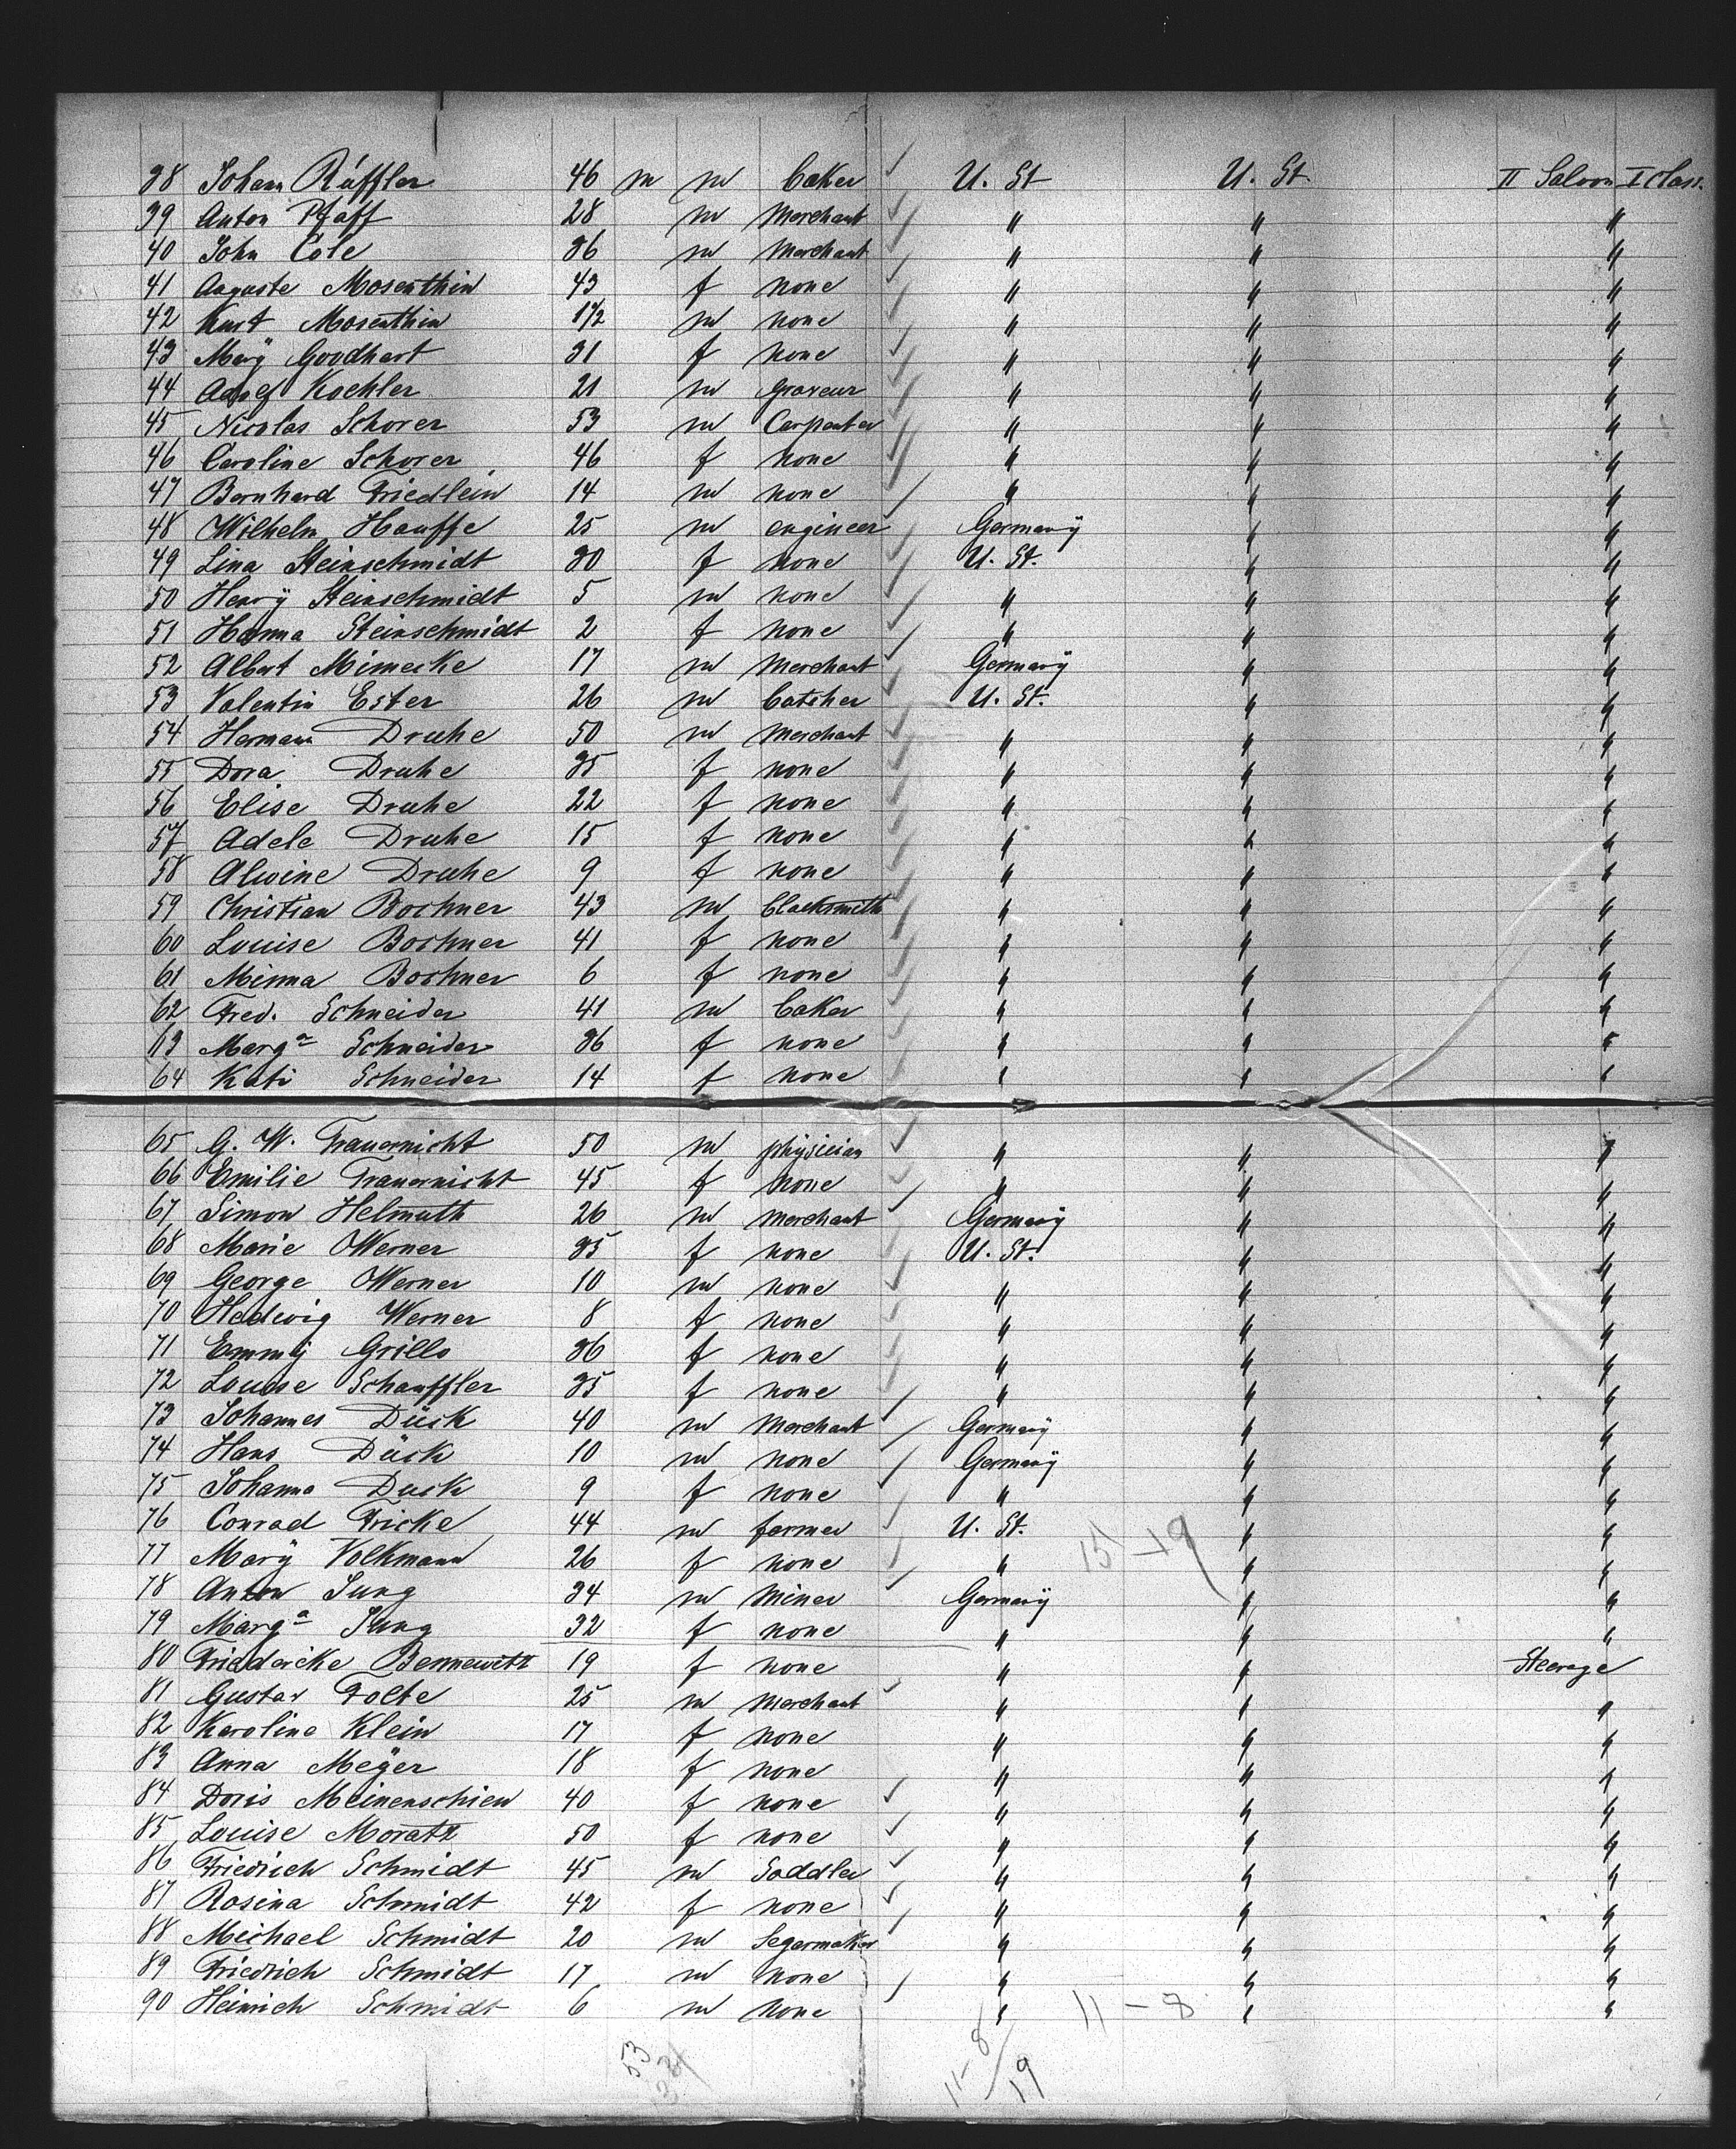 38 Johann Räffler 46 m m baker U. St U. St. II Saloon I class.
39 Anton Pfaff 28 m Merchant " " "
40 John Cole 36 m Merchant " " "
41 Auguste Mosenthin 43 f none " " "
42 Kurt Mosenthin 1 1/2 m none " " "
43 Marÿ Goodhart 31 f none " " "
44 Adolf Koehler 21 m graveur " " "
45 Nicolas Schorer 53 m Carpenter " " "
46 Caroline Schorer 46 f none " " "
47 Bernhard Friedlein 14 m none " " "
48 Wilhelm Hauffe 25 m engineer Germanÿ " "
49 Lina Steinschmidt 30 f none U. St. " "
50 Henrÿ Steinschmidt 5 m none " " "
51 Hanna Steinschmidt 2 f none " " "
52 Albert Mimecke 17 m Merchant Germanÿ " "
53 Valentin Ester 26 m butcher U. St. " "
54 Hermann Druhe 50 m Merchant " " "
55 Dora Druhe 35 f none " " "
56 Elise Druhe 22 f none " " "
57 Adele Druhe 15 f none " " "
58 Alwine Druhe 9 f none " " "
59 Christian Bochner 43 m blacksmith " " "
60 Louise Bochner 41 f none " " "
61 Minna Bochner 6 f none " " "
62 Fred. Schneider 41 m baker " " "
63 Marga Schneider 36 f none " " "
64 Kati Schneider 14 f none " " "
65 G. W. Trauernicht 50 m physician " " "
66 Emilie Trauernicht 45 f none " " "
67 Simon Helmuth 26 m merchant Germanÿ " "
68 Marie Werner 35 f none U. St. " "
69 George Werner 10 m none " " "
70 Hedwig Werner 8 f none " " "
71 Emmÿ Grillo 36 f none " " "
72 Louise Schauffler 35 f none " " "
73 Johannes Dück 40 m Merchant Germanÿ " "
74 Hans Dück 10 m none Germanÿ " "
75 Johanna Duck 9 f none " " "
76 Conrad Fricke 44 m farmer U. St. " "
77 Marÿ Volkmann 26 f none " 15-19 " "
78 Anton Jung 34 m Miner Germanÿ " "
79 Marga Jung 32 f none " " "
80 Friedericke Bennewitz 19 f none " " Steerage
81 Gustav Tolte 25 m Merchant " " "
82 Karoline Klein 17 f none " " "
83 Anna Meÿer 18 f none " " "
84 Doris Meinenschien 40 f none " " "
85 Louise Moratz 50 f none " " "
86 Friedrich Schmidt 45 m Saddler " " "
87 Rosina Schmidt 42 f none " " "
88 Michael Schmidt 20 m Segarmaker " " "
89 Friedrich Schmidt 17 m none " " "
90 Heinrich Schmidt 6 m none " 11-8 " "
53 11-8
19